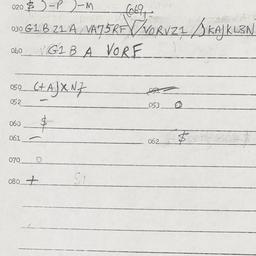 020 $ )-P )-M (069
030 G1B Z1A VA75RF VORVZ1 /)KAJKL8N
060 G1 B A VORF
050 (+A)XN7
052 -
053 0
060 $
061 -
062 $
070 0
080 +